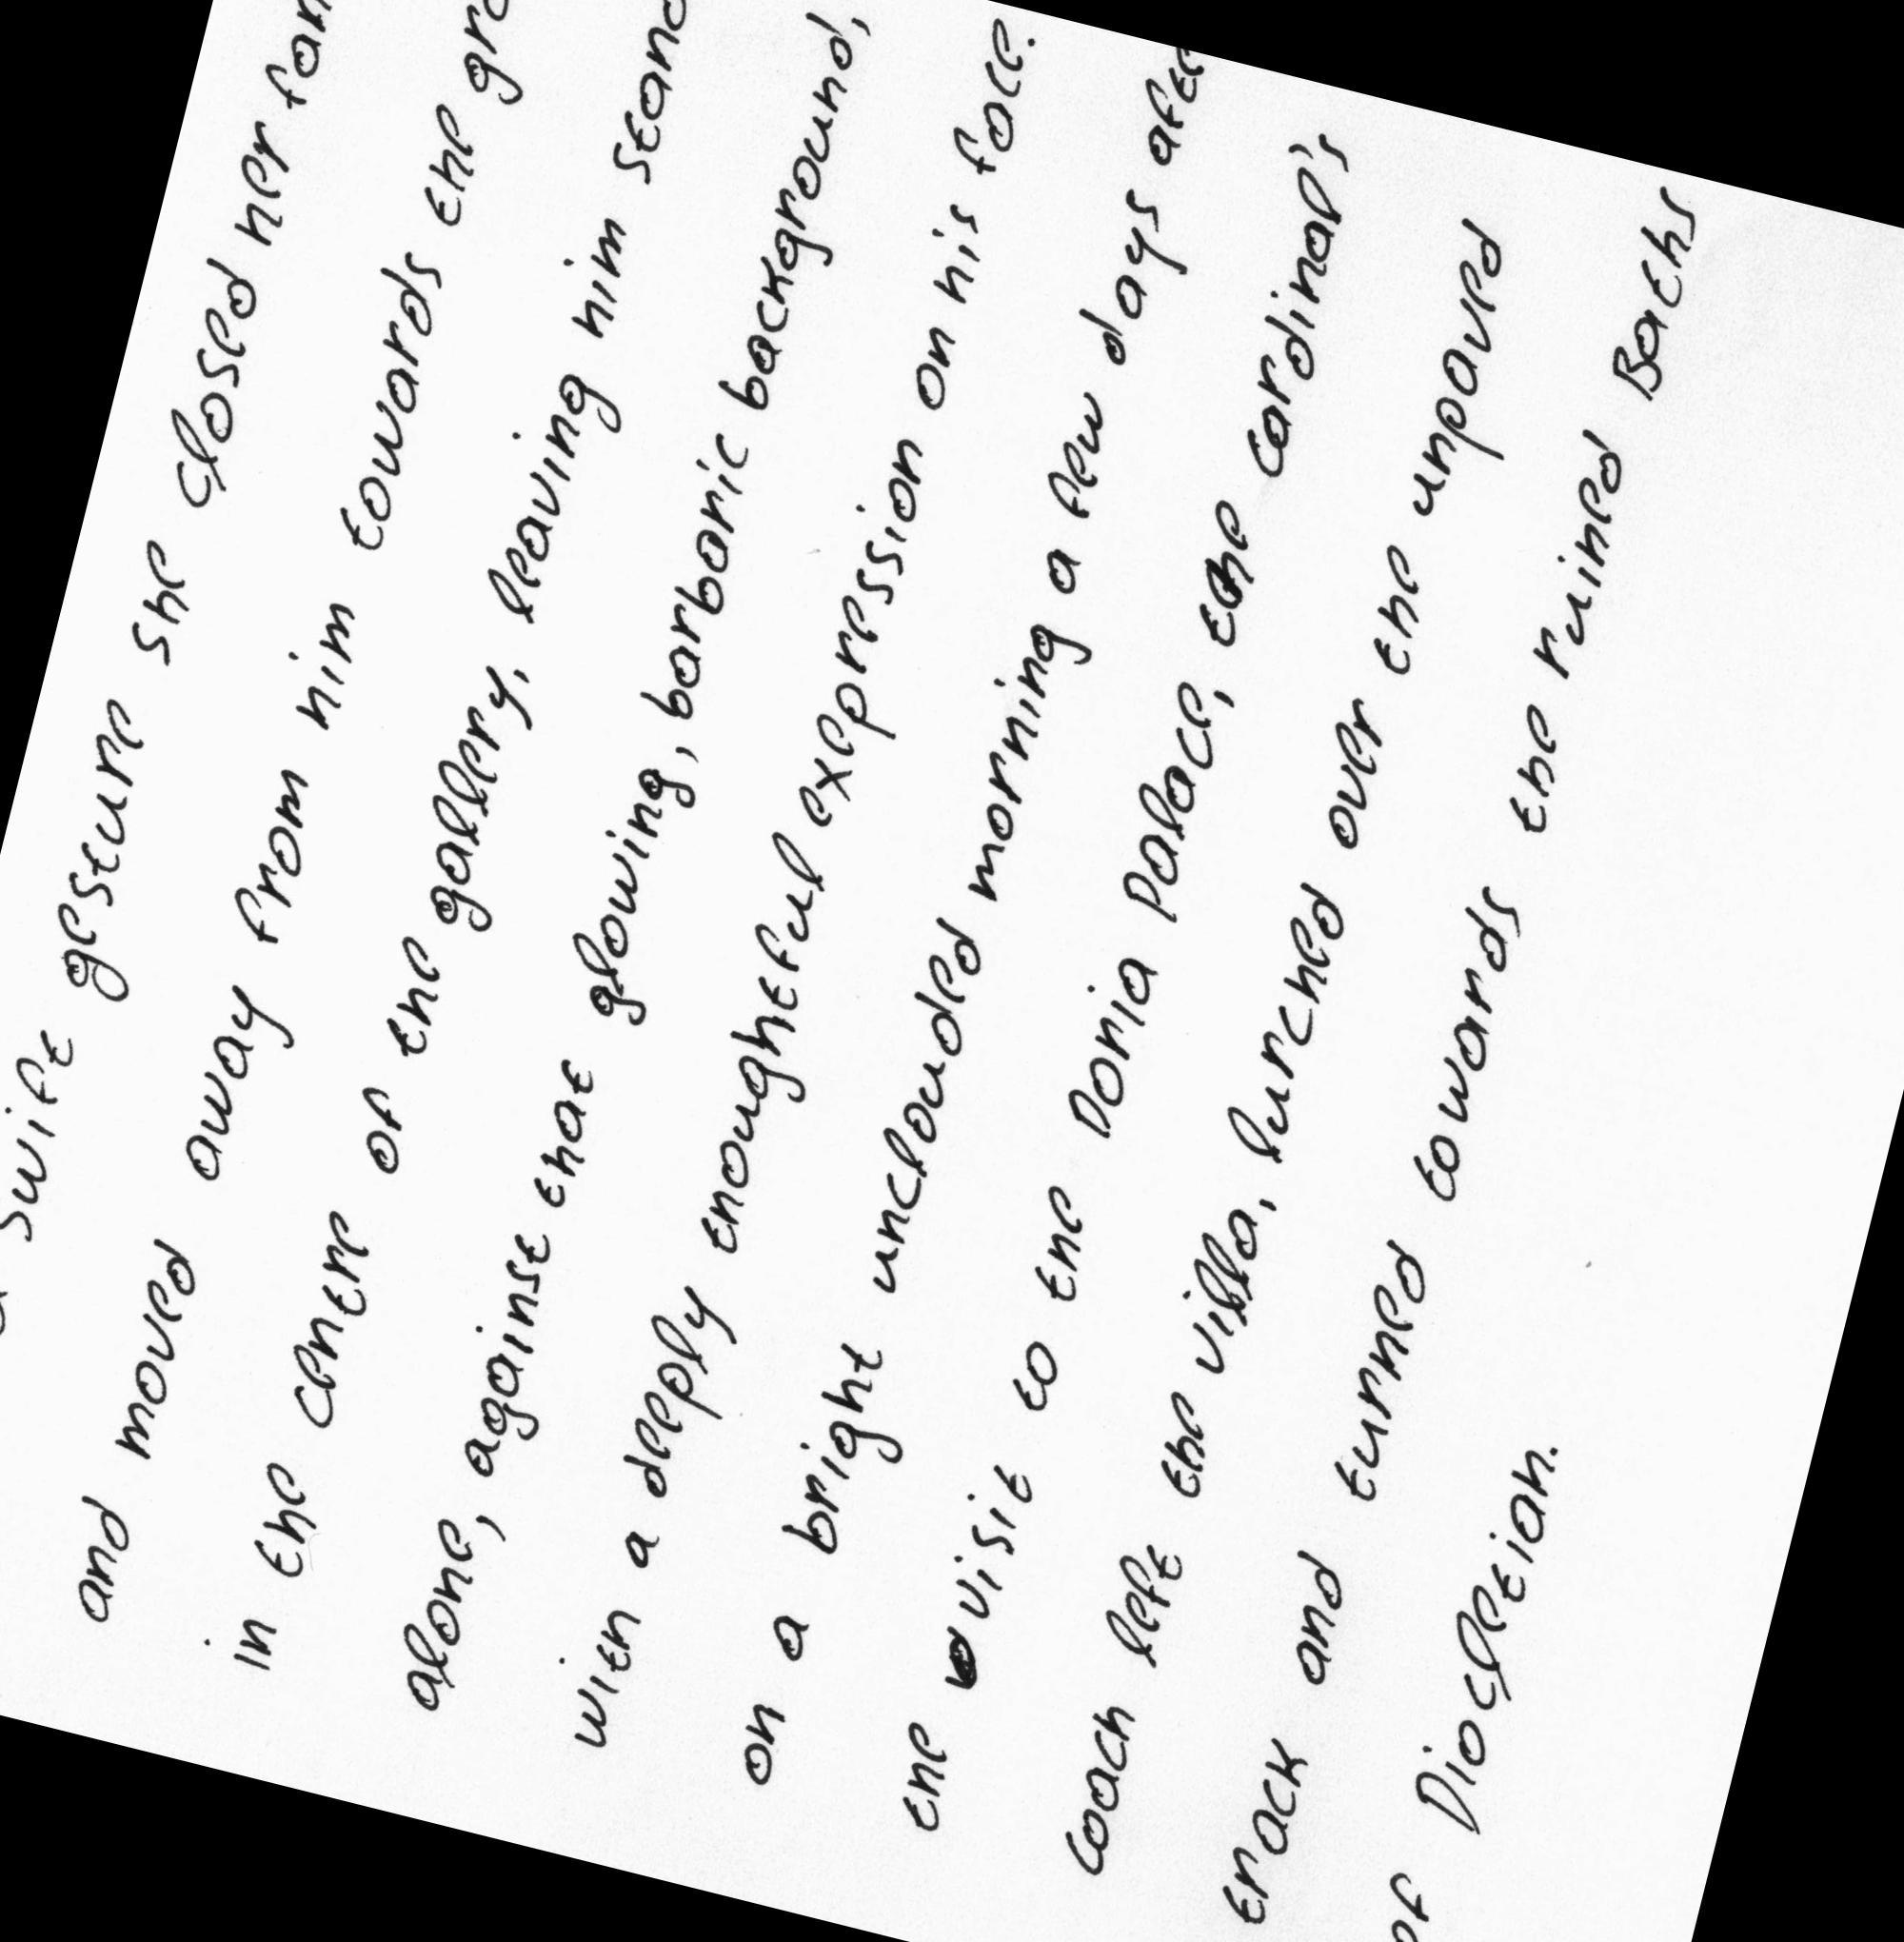 swift gesture she closed her fan
and moved away from him towards the
in the centre of the gallery, leaving him
alone, against that glowing, barbaric background,
with a deeply thoughtful expression on his face.
on a bright unclouded morning a few days
the visit to the Doria Palace, the Cardinal's
coach left the villa, lurched over the unpaved
track and turned towards the ruined Baths
of Diocletian.